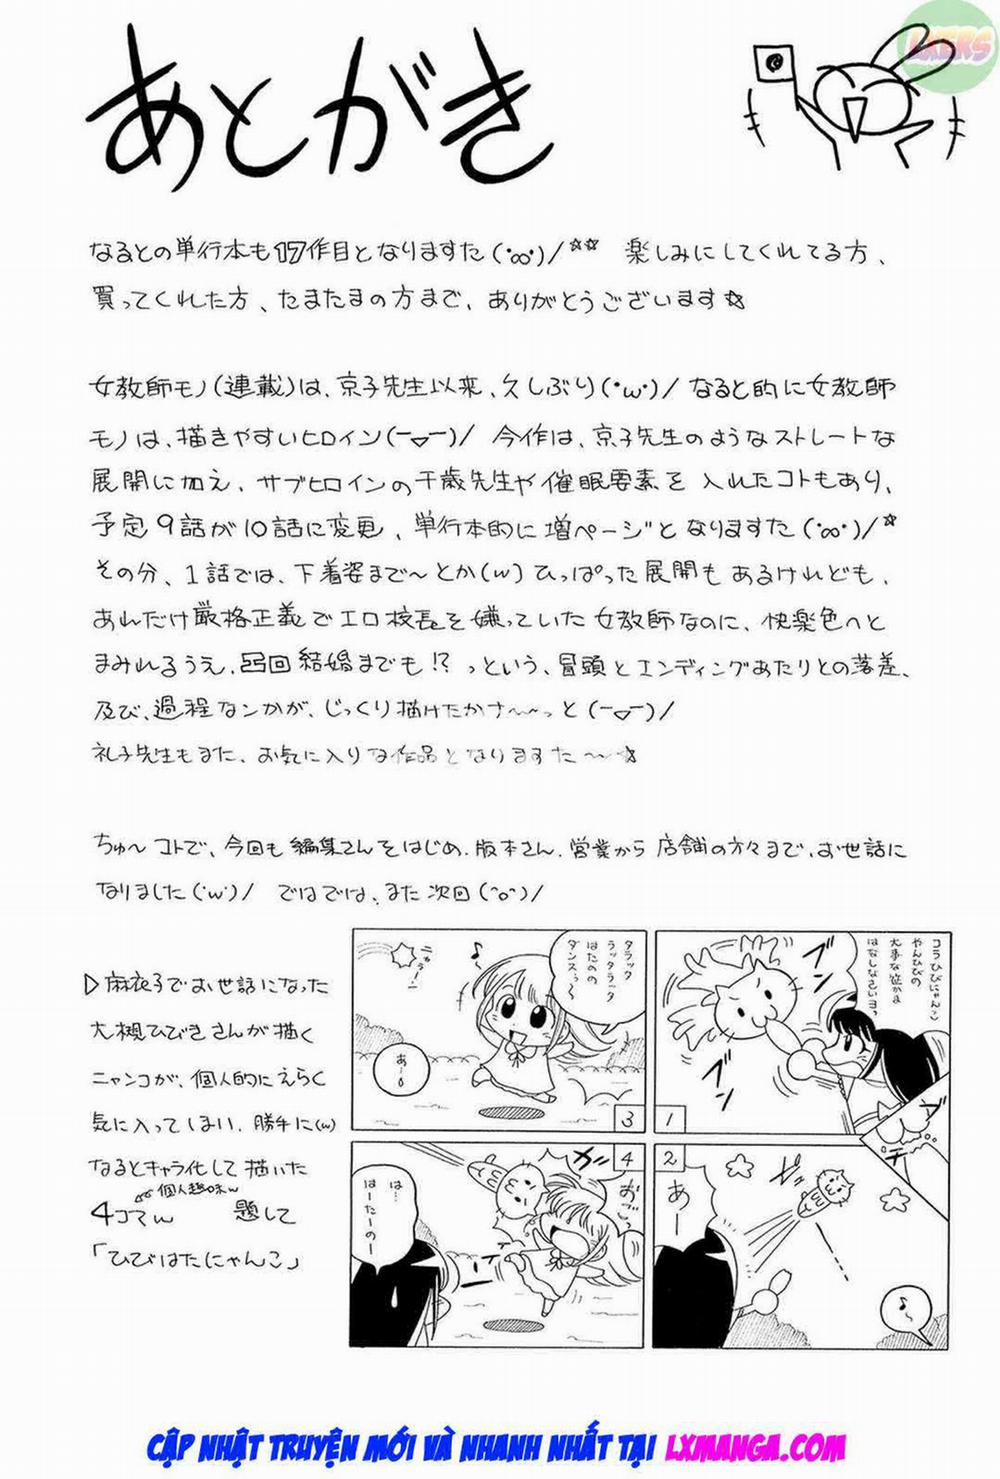 あとがき
LXERS
なるとの単行本も17作目となりますた(･∞･)/☆☆ 楽しみにしてくれてる方、
買ってくれた方、たまたまの方まで、ありがとうございます☆
女教師モノ(連載)は、京子先生以来、久しぶり(･ω･)/ なると的に女教師
モノは、描きやすいヒロイン(ー▽ー)/ 今作は、京子先生のようなストレートな
展開に加え、サブヒロインの千歳先生や催眠要素を入れたコトもあり、
予定9話が10話に変更、単行本的に増ページとなりますた(･∞･)/☆
その分、1話では、下着姿まで〜とか(w)ひっぱった展開もあるけれども、
あれだけ厳格正義でエロ校長を嫌っていた女教師なのに、快楽色へと
まみれるうえ、凸凹結婚までも!? っという、冒頭とエンディングあたりとの落差、
及び、過程なンかが、じっくり描けたかナ〜〜っと(ー▽ー)/
礼子先生もまた、お気に入りな作品となりますた〜☆
ちゅ〜コトで、今回も編集さんをはじめ、版本さん、営業から店舗の方々まで、お世話に
なりました(･ω･)/ ではでは、また次回(^o^)/
▷麻衣子でお世話になった
大槻ひびきさんが描く
ニャンコが、個人的にえらく
気に入ってしまい、勝手に(w)
なるとキャラ化して描いた
個人趣味w
4コマw 題して
「ひびはたにゃんこ」
コラひびにゃんこ
やんひびの
大事な位かま
はなしなさいヨっ
ブン
ブン
1
2
あー
♪
♪
ニャラー!
タラッタ
ラッタラータ
はたのの
ダンスっ〜
あ〜
3
4
ガッ
おごっ
は…
はーたーのー
CẬP NHẬT TRUYỆN MỚI VÀ NHANH NHẤT TẠI LXMANGA.COM